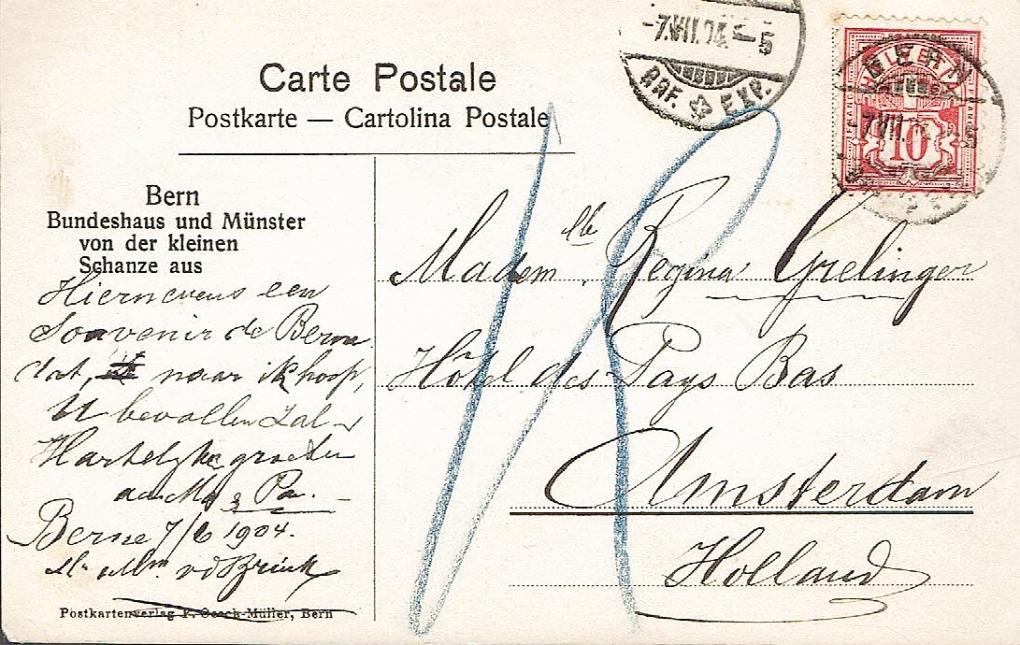 -7.VII.04.-5
BRF. EXP.
BERN
-7.VII.
10
Carte Postale
Postkarte — Cartolina Postale
Bern
Bundeshaus und Münster
von der kleinen
Schanze aus
Hiernevens een
Souvenir de Berne
dat, naar ik hoop,
U bevallen zal -
Hartelyke groeten
aan Ma & Pa. -
Berne 7/6 1904.
Mr & Mme vdBrink
Postkartenverlag Müller, Bern
Madem.lle Regina Grelinger
Hôtel des Pays Bas
Amsterdam
Holland